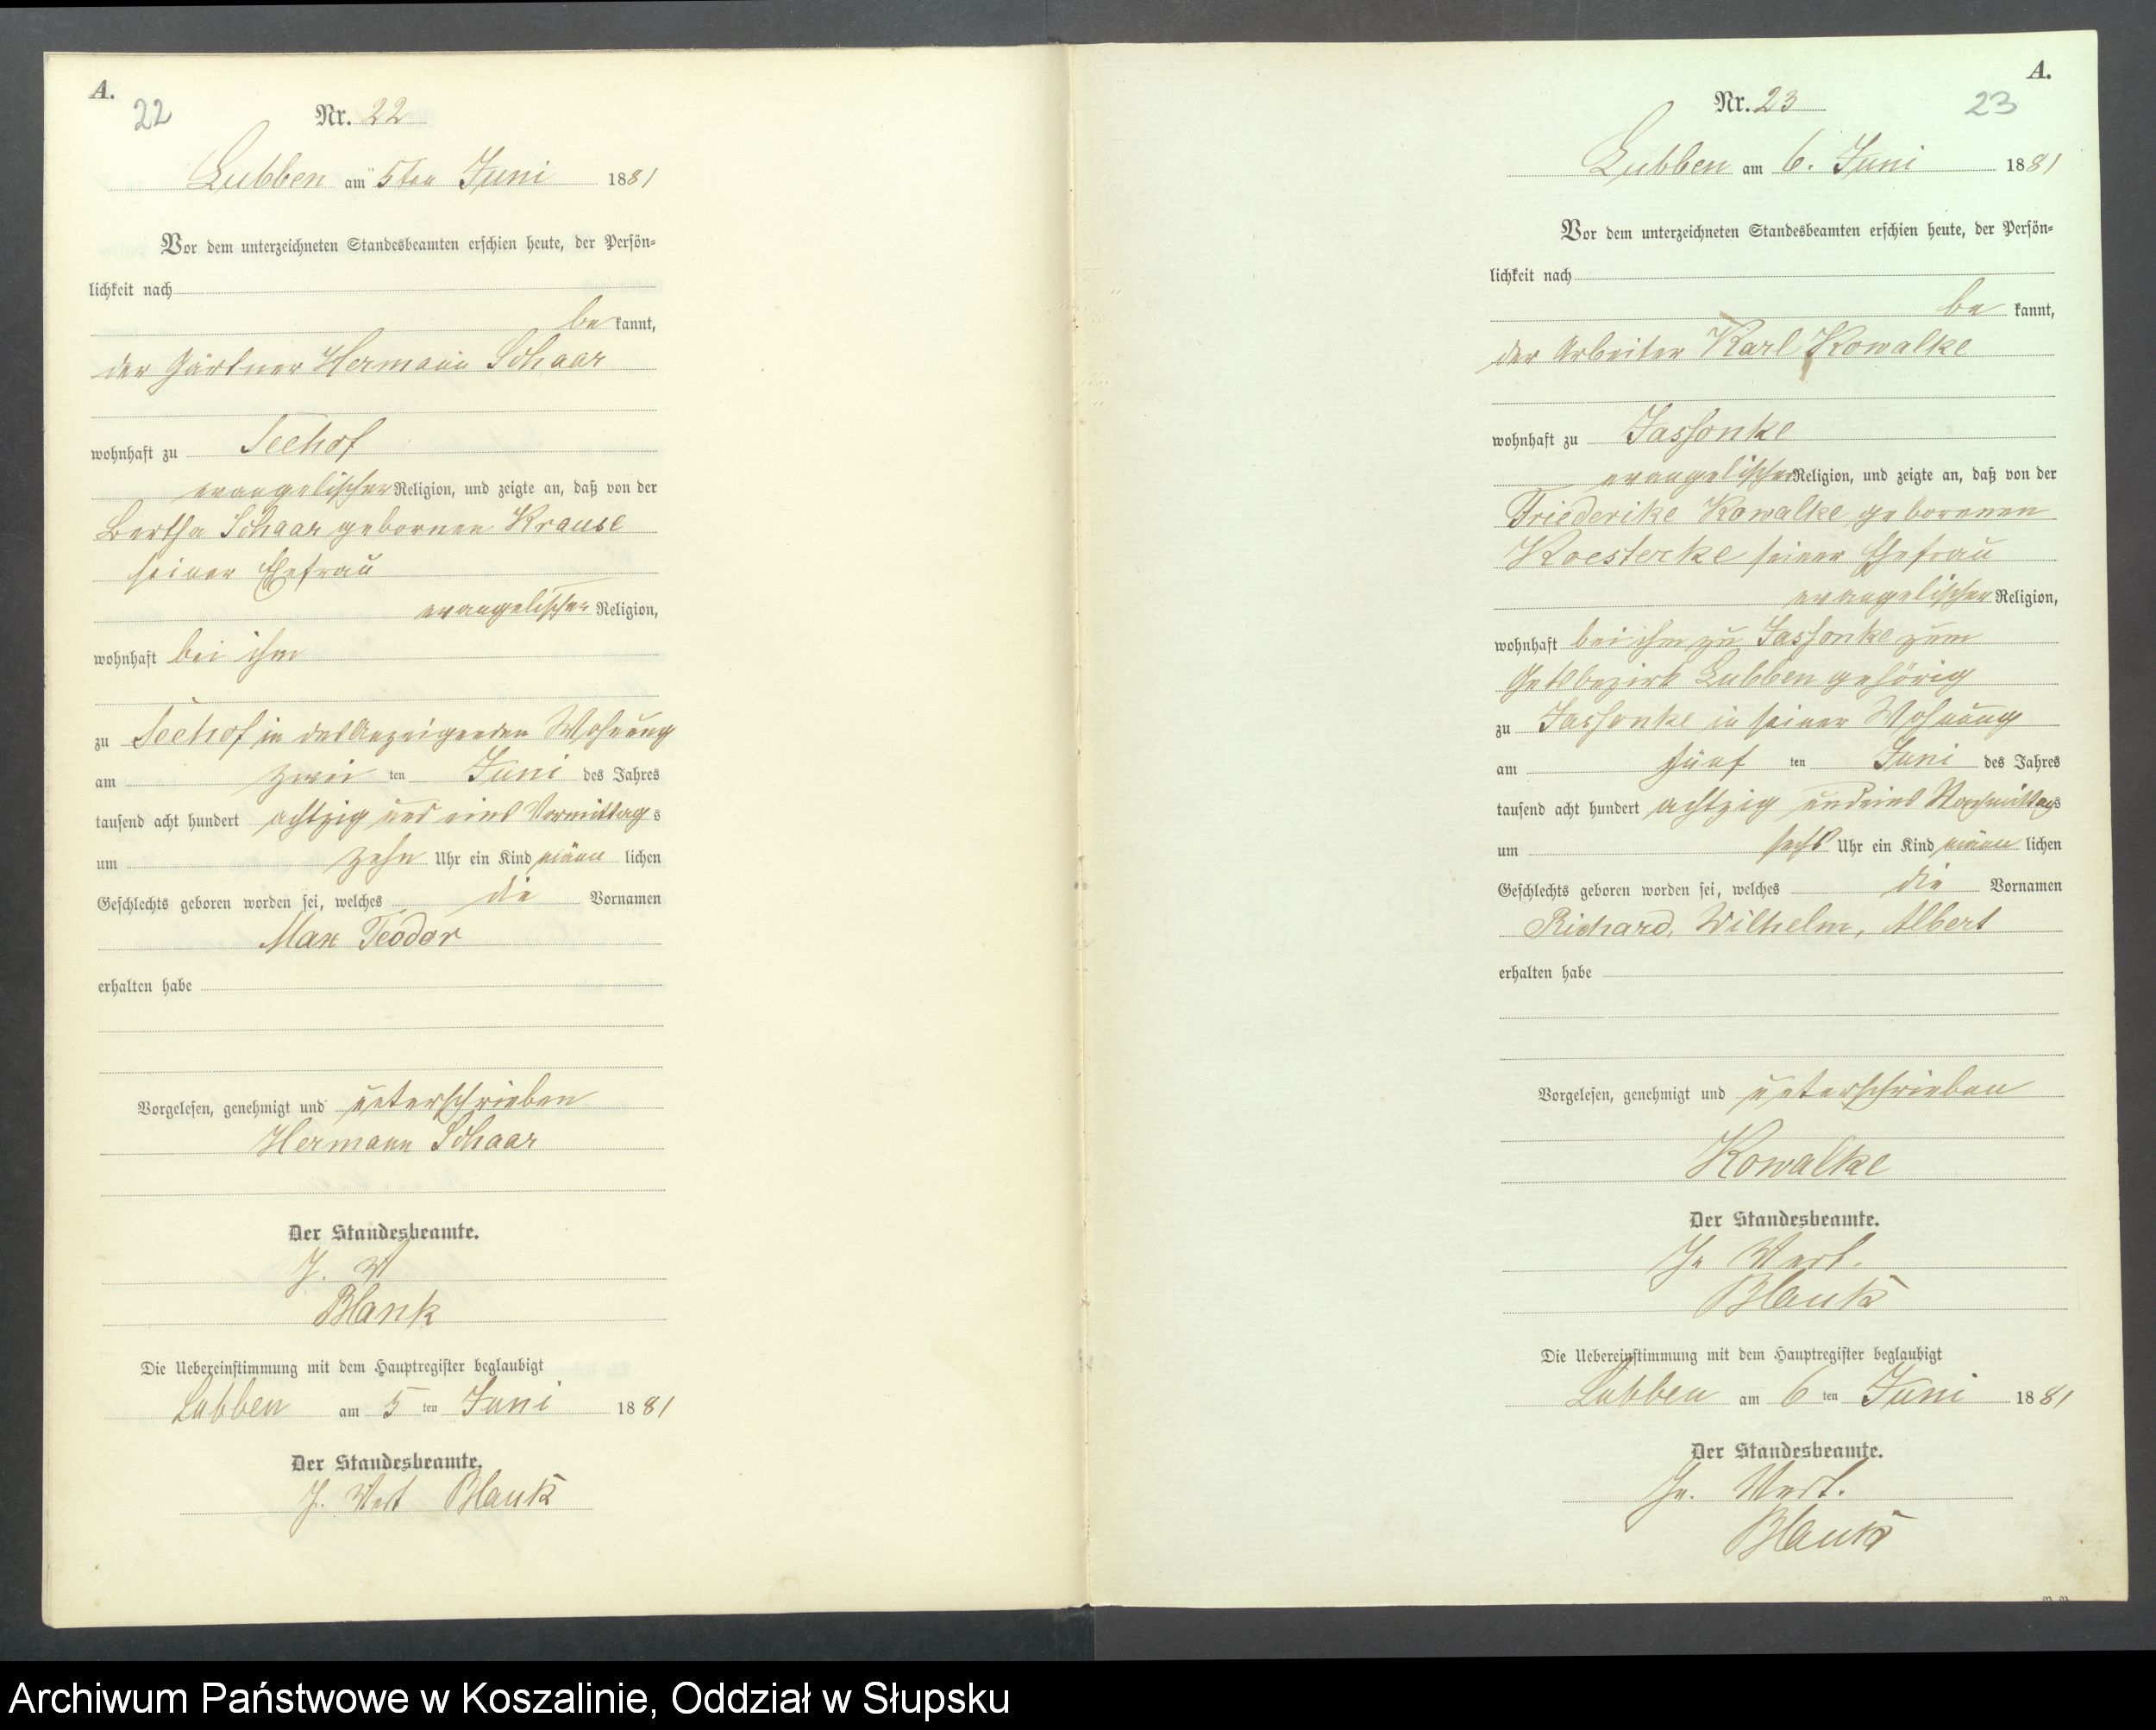 A.
22
Nr. 22
Lubben am 5ten Juni 1881
Vor dem unterzeichneten Standesbeamten erschien heute, der Persön=
lichkeit nach
be kannt,
der Gärtner Hermann Schaar
wohnhaft zu Seehof
evangelischer Religion, und zeigte an, daß von der
Bertha Schaar gebornen Krause
seiner Ehefrau
evangelischer Religion,
wohnhaft bei ihm
zu Seehof in des Anzeigenden Wohnung
am zwei ten Juni des Jahres
tausend acht hundert achtzig und eins Vormittag s
um zehn Uhr ein Kind männ lichen
Geschlechts geboren worden sei, welches die Vornamen
Max Teodor
erhalten habe
Vorgelesen, genehmigt und unterschrieben
Hermann Schaar
Der Standesbeamte.
J. V
Blank
Die Uebereinstimmung mit dem Hauptregister beglaubigt
Lubben am 5 ten Juni 1881
Der Standesbeamte.
J. Vert Blank
A.
23
Nr. 23
Lubben am 6. Juni 1881
Vor dem unterzeichneten Standesbeamten erschien heute, der Persön=
lichkeit nach
be kannt,
der Arbeiter Karl Kowalke
wohnhaft zu Jassonke
evangelischer Religion, und zeigte an, daß von der
Friederike Kowalke geborenen
Koesterke seiner Ehefrau
evangelischer Religion,
wohnhaft bei ihm zu Jassonke zum
Gutsbezirk Lubben gehörig
zu Jassonke in seiner Wohnung
am fünf ten Juni des Jahres
tausend acht hundert achtzig und eins Nachmittags
um sechs Uhr ein Kind männ lichen
Geschlechts geboren worden sei, welches die Vornamen
Richard, Wilhelm, Albert
erhalten habe
Vorgelesen, genehmigt und unterschrieben
Kowalke
Der Standesbeamte.
In Vert.
Blank
Die Uebereinstimmung mit dem Hauptregister beglaubigt
Lubben am 6 ten Juni 1881
Der Standesbeamte.
In. Vert.
Blank
Archiwum Państwowe w Koszalinie, Oddział w Słupsku